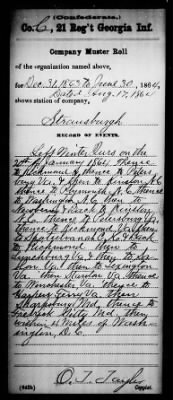 (Confederate.)
Co. C, 21 Reg't Georgia Inf.
Company Muster Roll
of the organization named above,
for Dec. 31, 1863 to June 30, 1864,
dated Aug. 17, 1864
shows station of company,
Strausburgh
RECORD OF EVENTS.
Left Winter Qurs on the
20th of January 1864, thence
to Richmond Va thence to Peters
burg Va. then to Kinston N.C.
thence to Plymouth N.C. thence
to Washington N.C. then to
Newbern & back to Kingston
N.C. thence to Petersburg Va.
thence to Richmond Va. then
to Spotsylvania C.H. & back
to Richmond then to
Lynchburg Va & then to
Va. then to Lexington
Va. then Staunton Va. thence
to Winchester Va. thence to
Harpers Ferry Va. then
Sharpsburg Md, thence to
Fredrick City Md, then
within 4 Miles of Wash-
ington, D.C.
O. T. Taylor
Copyist.